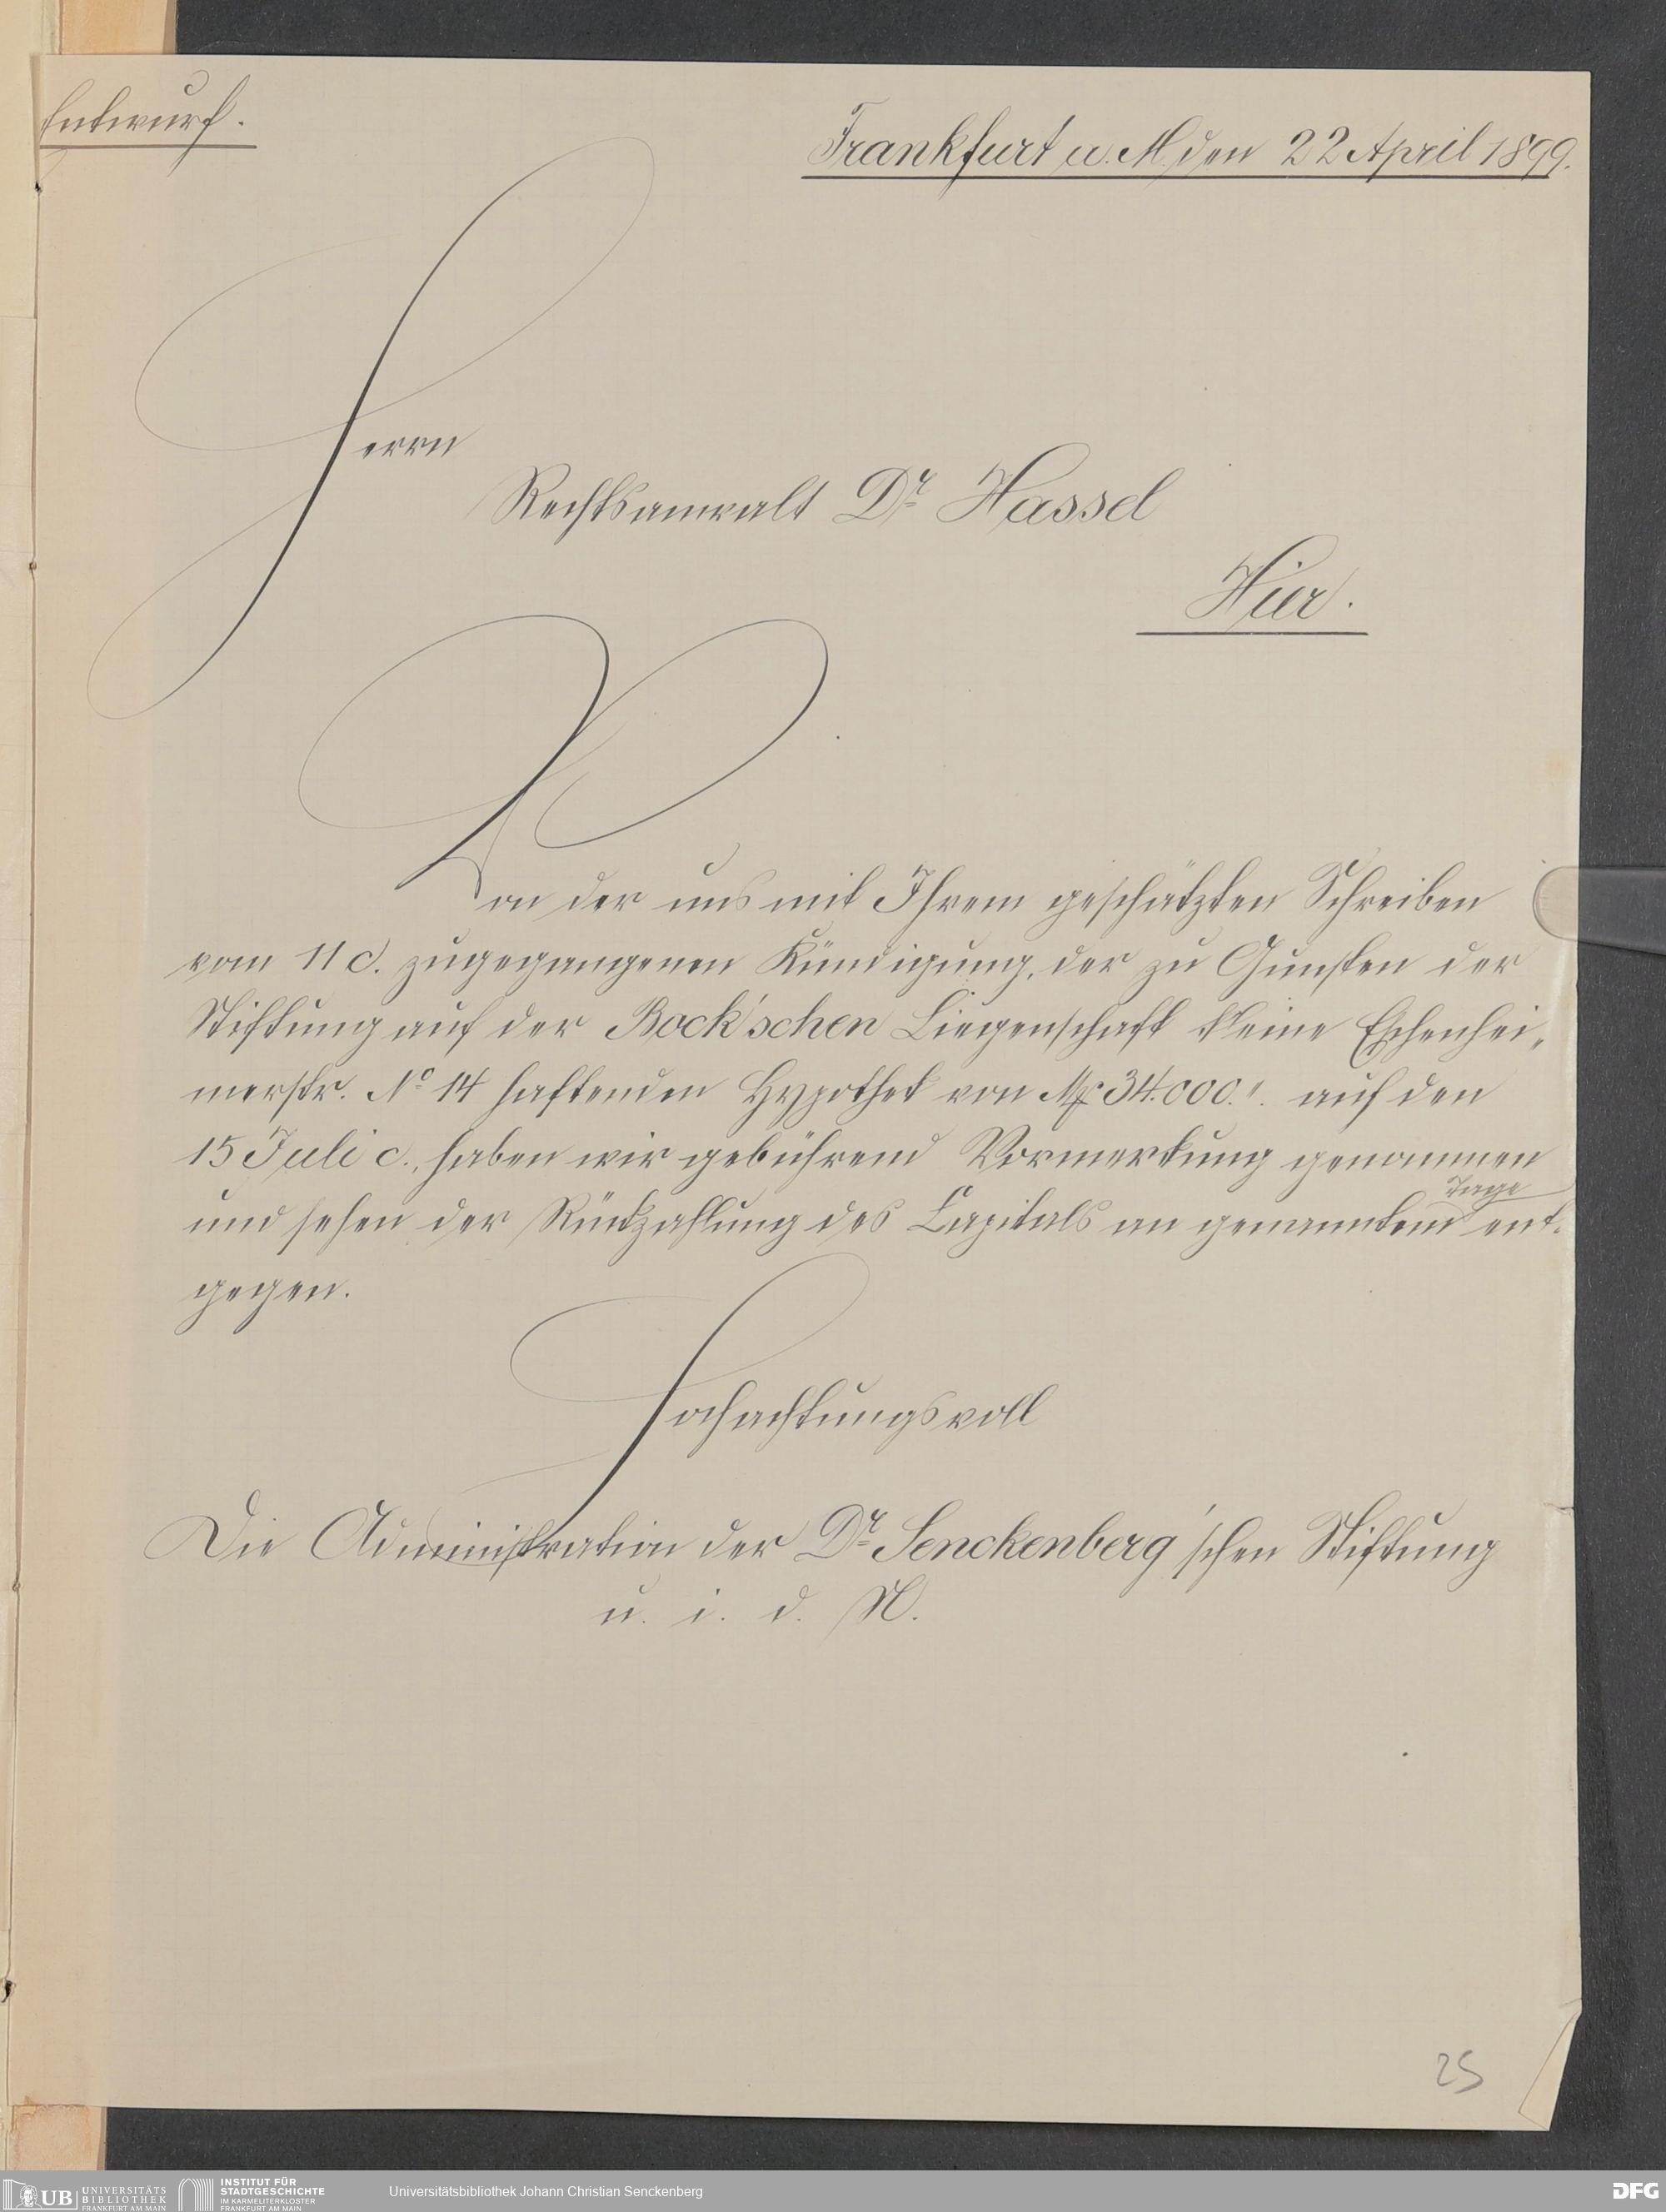 Entwurf.
Frankfurt a. M den 22 April 1899.
Herrn
Rechtsanwalt Dr Hassel
Hier.
Von der uns mit Ihrem geschätzten Schreiben
vom 11 c. zugegangenen Kündigung, der zu Gunsten der
Stiftung auf der Bock'schen Liegenschaft kleine Eschenhei„
merstr. No 14 haftenden Hypothek von M 34.000.". auf den
15 Juli c., haben wir gebührend Vormerkung genommen
Tage
und sehen der Rückzahlung des Capitals an genanntem ent-
gegen.
Hochachtungsvoll
Die Administration der Dr Senckenberg'schen Stiftung
u. i. d. N.
25
UB UNIVERSITÄTS
BIBLIOTHEK
FRANKFURT AM MAIN
INSTITUT FÜR
STADTGESCHICHTE
IM KARMELITERKLOSTER
FRANKFURT AM MAIN
Universitätsbibliothek Johann Christian Senckenberg
DFG